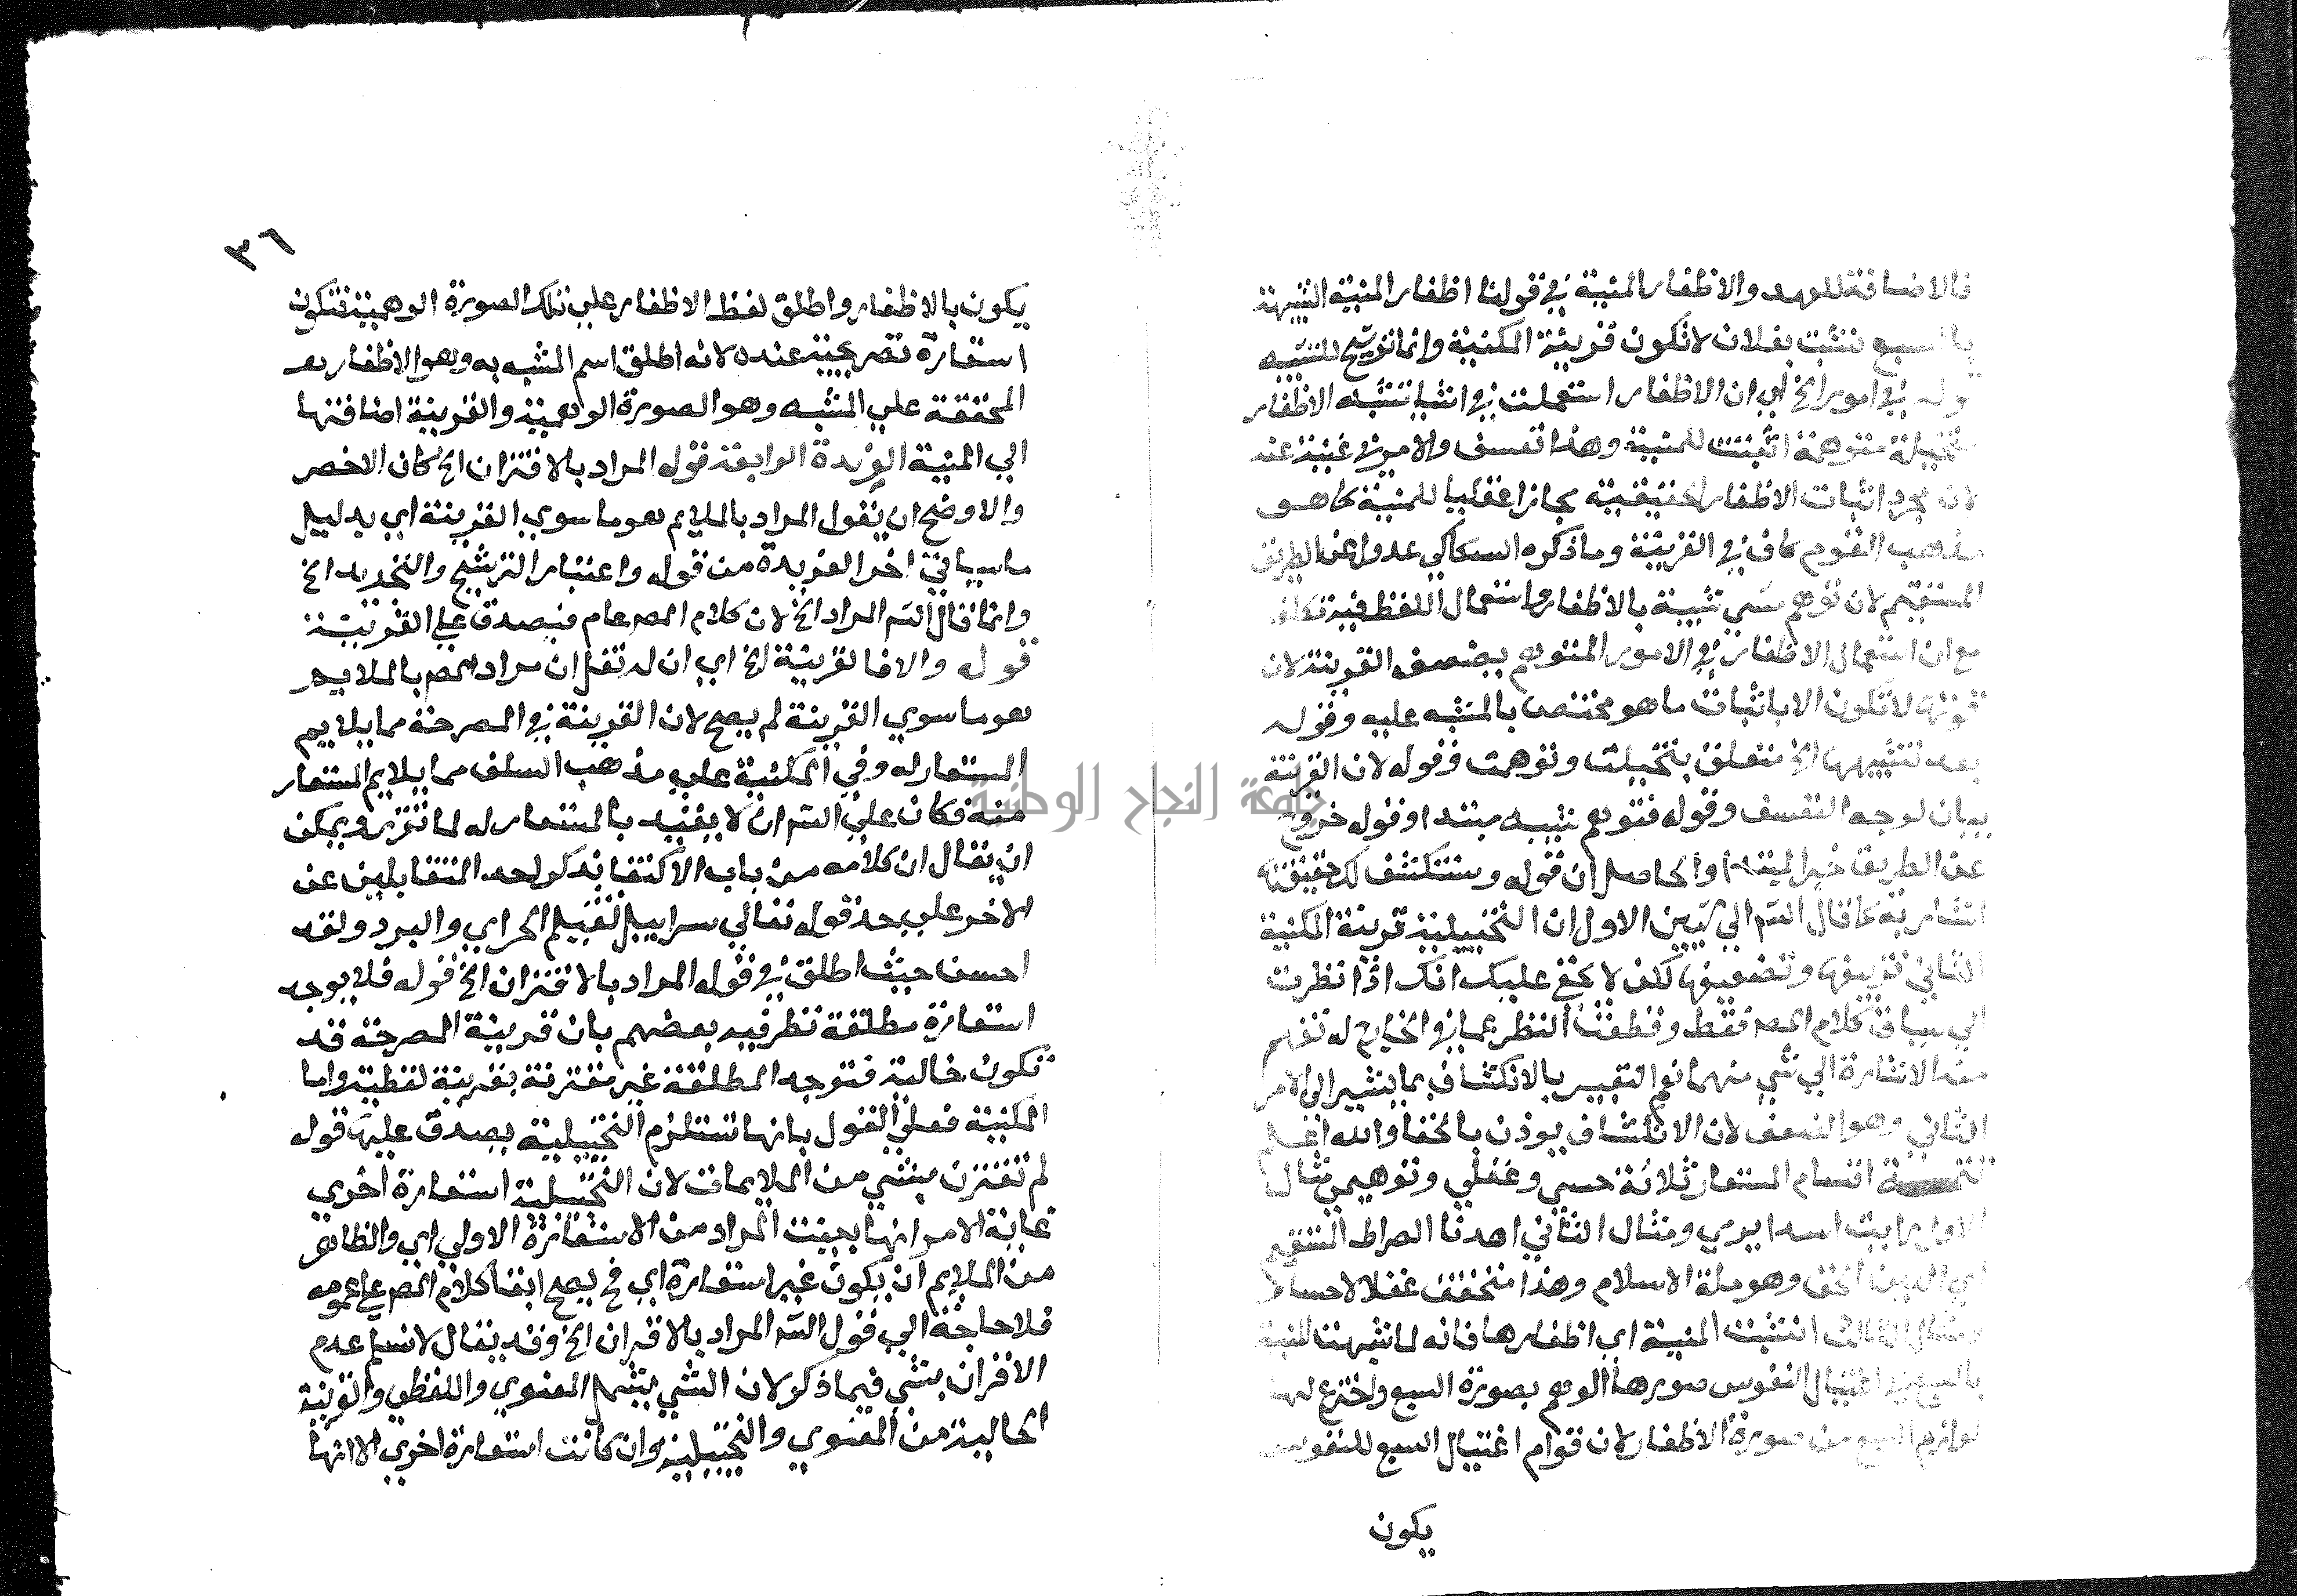 فالاضافة للعهد والاظفار المنية في قولنا اظفار المنية الشبيهة
بالسبع نشبت بفلان لا تكون قرينة المكنية وانما ترشيح للتشبيه
في امور الخ اي ان الاظفار استعملت في اشيا تشبه الاظفار
متخيلة متوهمة اثبتت للمنية وهذا تعسف والامر في غنية عنه
لان مجرد اثبات الاظفار الحقيقية مجازا عقليا للمنية كما هو
مذهب القوم كاف في القرينة وما ذكره السكاكي عدول عن الطريق
المستقيم لان توهم شي شبيه بالاظفار واستعمال اللفظ فيه تكلف
مع ان استعمال الاظفار في الامور المتوهم يضعف القرينة لان
قوتها لا تكون الا باثبات ما هو مختص بالمشبه عليه وقوله
بعد تشبيهها الخ متعلق بتخيلت وتوهمت وقوله لان القرينة
بيان لوجه التعسف وقوله فتوهم شبيه مبتدا وقوله خروج
عن الطريق خبر المبتدا والحاصل ان قوله وستكشف لك حقيقته
اشار به كما قال الش الي شيين الاول ان التخييلية قرينة المكنية
الثاني تزييفها وتضعيفها لكن لا يخفي عليك انك اذا نظرت
الي سياق كلام المص فقط وقطعت النظر عما في الخارج لم تفهم
منه الاشارة الي شي منهما نعم التعبير بالانكشاف بما يشير الى الامر
الثاني وهو الضعف لان الانكشاف يوذن بالخفا والله اعلم
تتمــة اقسام المستعار ثلاثة حسي وعقلي وتوهيمي مثال
الاول رايت اسدا يرمي ومثال الثاني اهدنا الصراط المستقيم
اي الدين الحق وهو ملة الاسلام وهذا متحقق عقلا لا حسا
ومثال الثالث انشبت المنية اي اظفارها فانه لما شبهت المنية
بالسبع في اغتيال النفوس صورها الوهم بصورة السبع واخترع لها
لوازم السبع من صورة الاظفار لان قوام اغتيال السبع للنفوس
يكون
٣٦
يكون بالاظفار واطلق لفظ الاظفار علي تلك الصورة الوهمية فتكون
استعارة تصريحية عنده لانه اطلق اسم المشبه به وهو الاظفار
المحققة علي المشبه وهو الصورة الوهمية والقرينة اضافتها
الي المنية الفريدة الرابعة قوله المراد بالاقتران الخ كان الاخصر
والاوضح ان يقول المراد بالملايم هو ما سوي القرينة اي بدليل
ما سياتي اخر الفريدة من قوله واعتبار الترشيح والتجريد الخ
وانما قال الش المراد الخ لان كلام المص عام فيصدق علي القرينة
قوله والا فالقرينة الخ اي ان لم تقل ان مراد المص بالملايم
هو ما سوي القرينة لم يصح لان القرينة في المصرحة مما يلايم
المستعار له وفي المكنية علي مذهب السلف مما يلايم المستعار
منه فكان علي الش ان لا يقيد بالمستعار له لما تقرر ويمكن
ان يقال ان كلامه من باب الاكتفا بذكر احد المتقابلين عن
الاخر علي حد قوله تعالي سرابيل تقيكم الحر اي والبرد ولقد
احسن حيث اطلق في قوله المراد بالاقتران الخ قوله فلا يوجد
استعارة مطلقة نظر فيه بعضهم بان قرينة المصرحة قد
تكون حالية فتوجد المطلقة غير مقترنة بقرينة لفظية واما
المكنية فعلي القول بانها تستلزم التخييلية يصدق عليها قوله
لم تقترن بشي من الملايمات لان التخييلية استعارة اخري
غاية الامر انها بينت المراد من الاستعارة الاولي اي والظاهر
من الملايم ان يكون غير استعارة اي فح يصح ابقا كلام المص علي عمومه
فلا حاجة الي قول الش المراد بالاقتران الخ وقد يقال لا نسلم عدم
الاقتران بشي فيما ذكر لان الشي يشمل المعنوي واللفظي والقرينة
الحالية من المعنوي والتخييلية وان كانت استعارة اخري الا انها
جامعة النجاح الوطنية